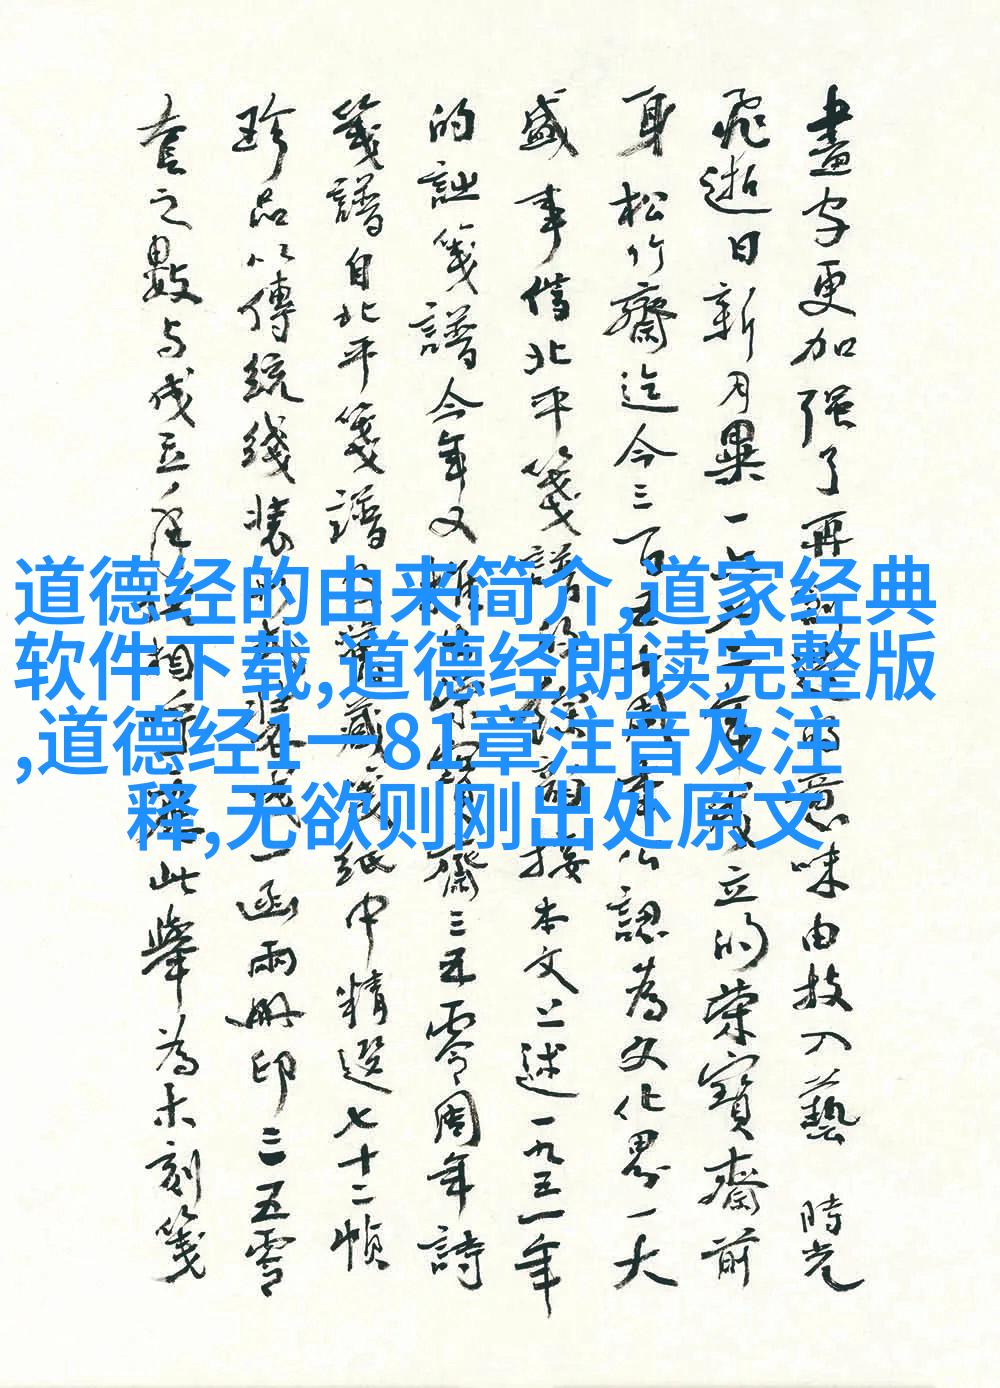 畫字更加强了再創造的意味由技入藝 時光
飛逝日新月異一六七二年成立的榮寶齋前
身松竹齋迄今三百五十周年公認為文化界一大
盛事北平箋譜接本文上述一九五一年
的箋譜今年又榮寶齋三五零周年詩
箋譜自北平箋譜舊藏箋紙中精選七十二幀
珍品以傳統綫裝形式裝成一函兩冊印三五零
套之數与成立年相此舉為木刻箋
道德经的由来简介,道家经典
软件下载,道德经朗读完整版
,道德经1一81章注音及注
释,无欲则刚出处原文